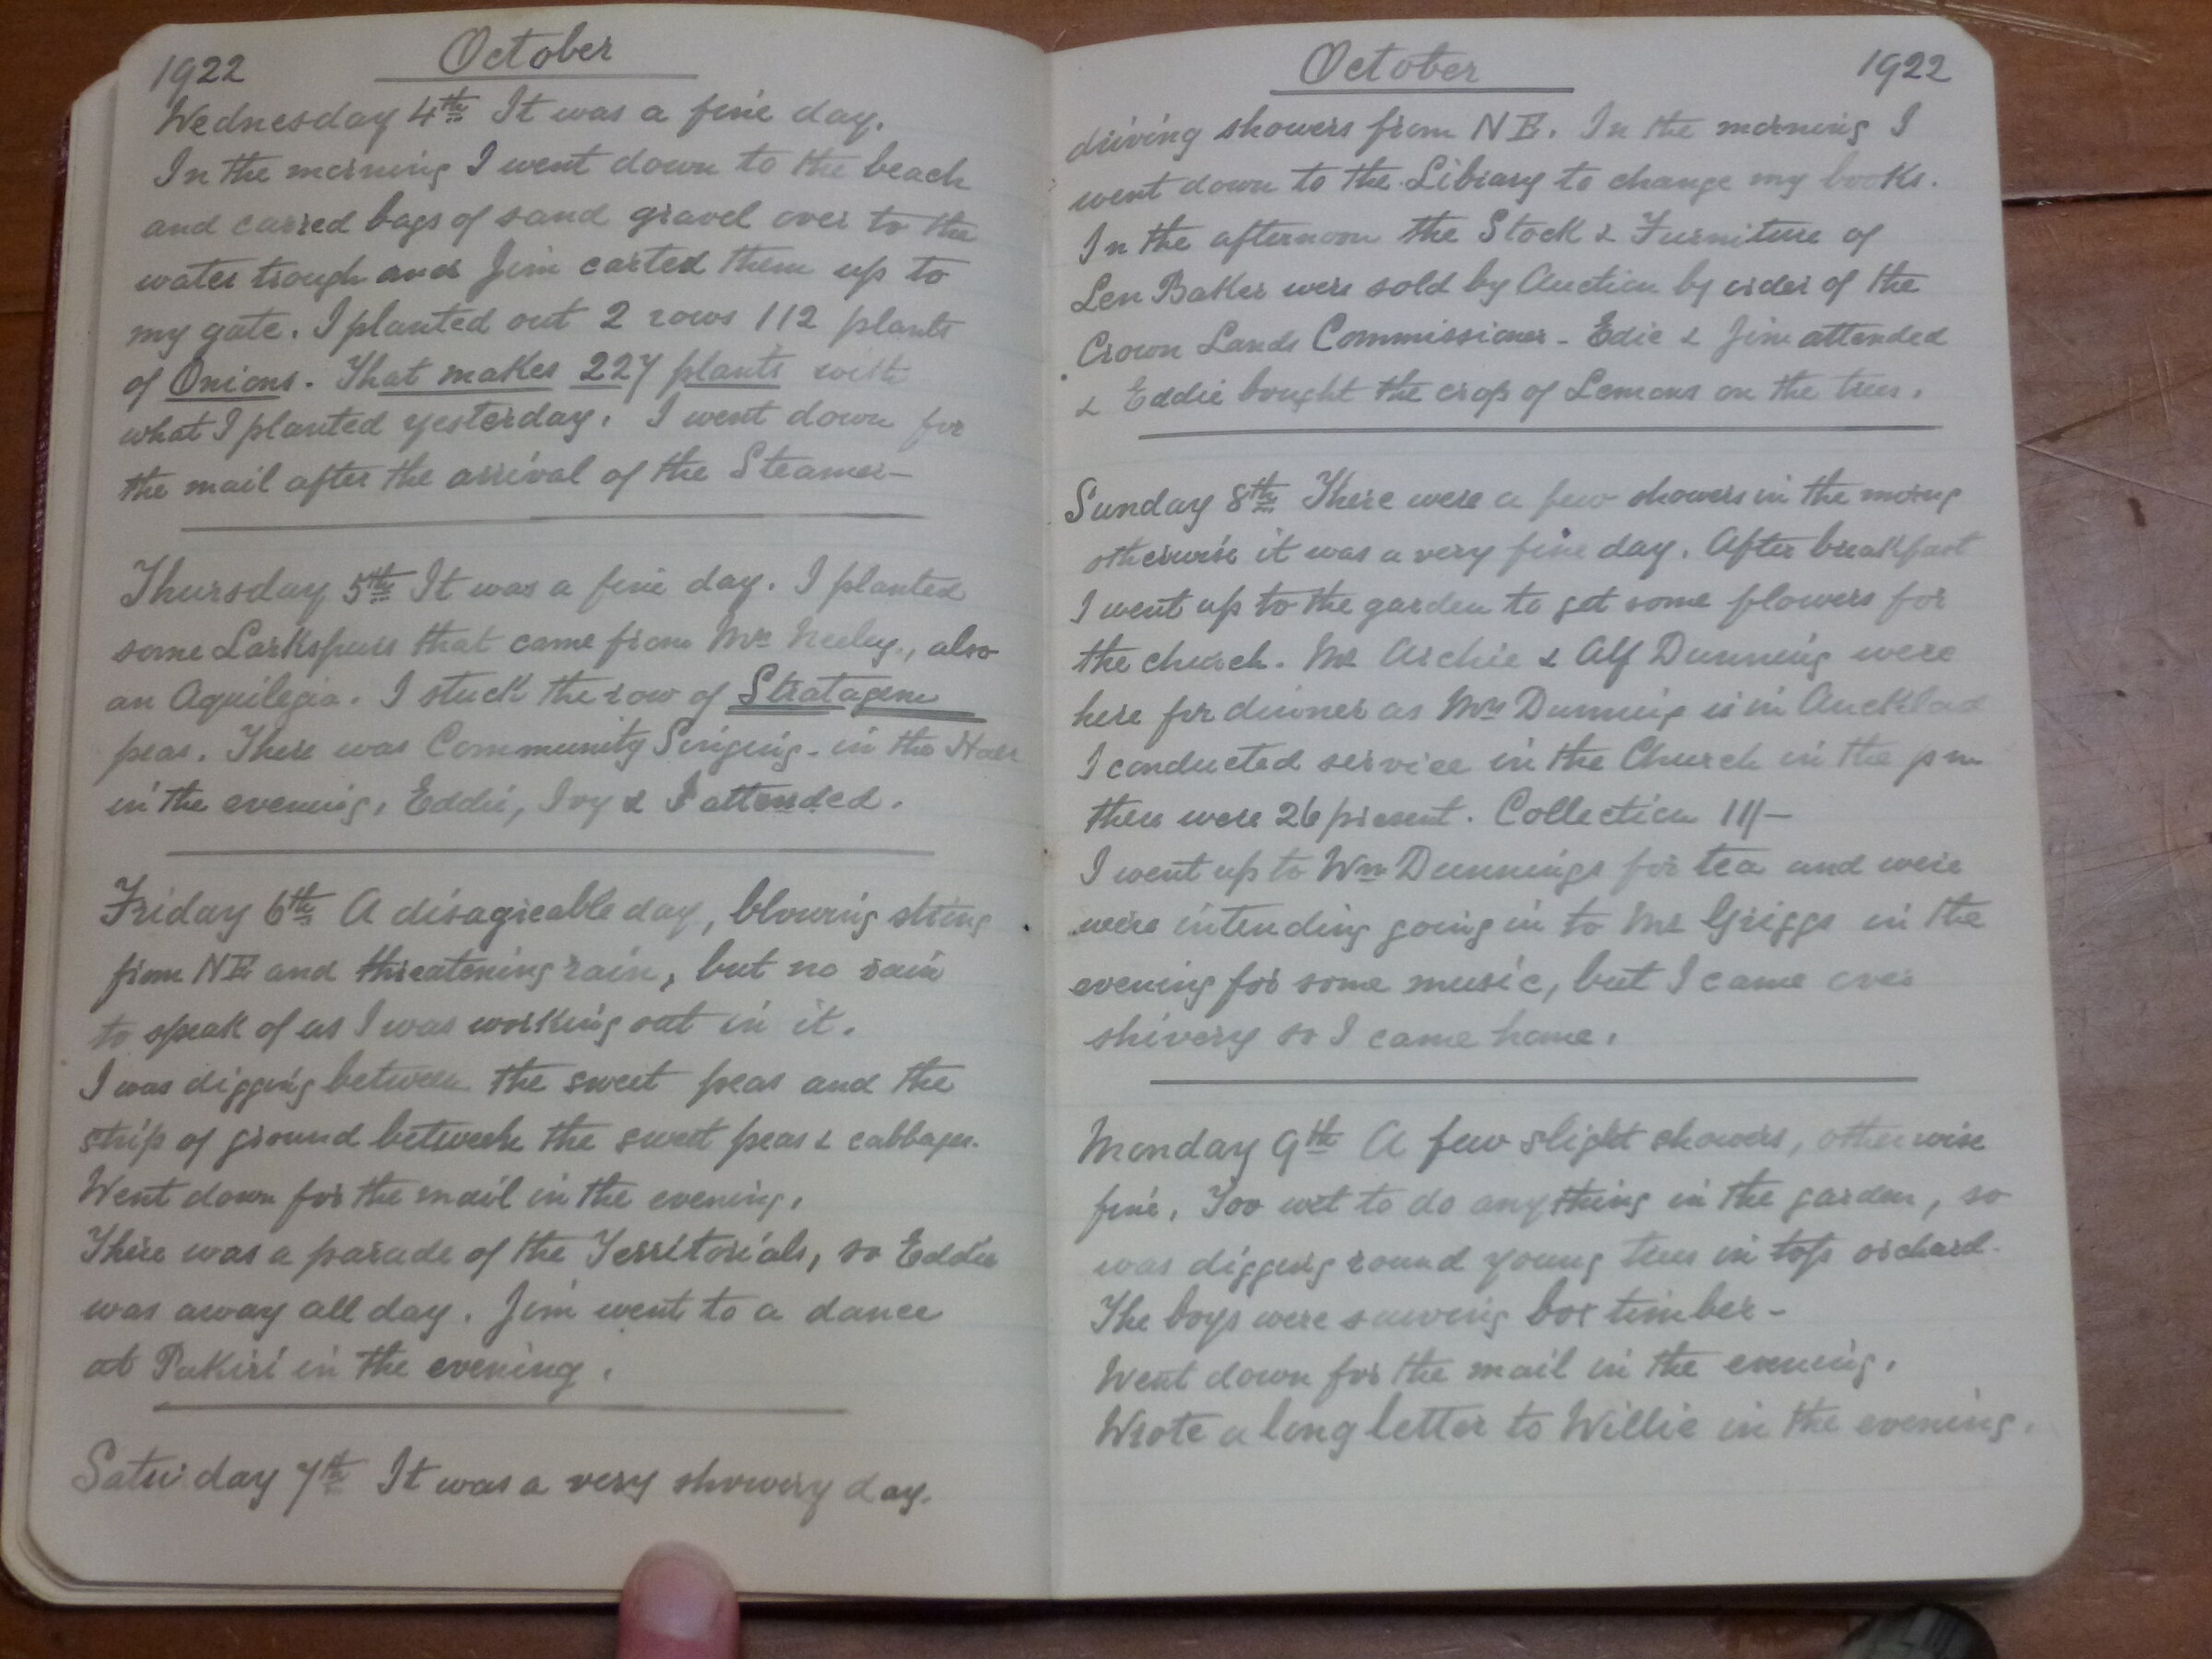 1922 October
Wednesday 4th It was a fine day.
In the morning I went down to the beach
and carred bags of sand gravel over to the
water trough and Jim carted them up to
my gate. I planted out 2 rows 112 plants
of Onions. That makes 227 plants with
what I planted yesterday. I went down for
the mail after the arrival of the Steamer-
Thursday 5th It was a fine day. I planted
some Larkspurs that came from Mrs Neeley, also
an Aquilegia. I stuck the row of Stratagem
peas. There was Community Singing - in the Hall
in the evening, Eddie, Ivy & I attended.
Friday 6th A disagreeable day, blowing strong
from NE and threatening rain, but no rain
to speak of as I was working out in it.
I was digging between the sweet peas and the
strip of ground between the sweet peas & cabbages.
Went down for the mail in the evening.
There was a parade of the Territorials, so Eddie
was away all day. Jim went to a dance
at Pakiri in the evening.
Saturday 7th It was a very showery day.
October 1922
driving showers from NE. In the morning I
went down to the Library to change my books.
In the afternoon the Stock & Furniture of
Len Baker were sold by Auction by order of the
Crown Lands Commissioner - Edie & Jim attended
& Eddie bought the crop of Lemons on the trees.
Sunday 8th There were a few showers in the morng
otherwise it was a very fine day. After breakfast
I went up to the garden to get some flowers for
the church. Mr Archie & Alf Dunning were
here for dinner as Mrs Dunning is in Aucklad
I conducted service in the Church in the pm
there were 26 present. Collection 11/-
I went up to Wm Dunnings for tea and were
were intending going in to Mr Griggs in the
evening for some music, but I came over
shivery so I came home.
Monday 9th A few slight showers, otherwise
fine. Too wet to do anything in the garden, so
was digging round young trees in top orchard.
The boys were sawing box timber-
Went down for the mail in the evening.
Wrote a long letter to Willie in the evening.